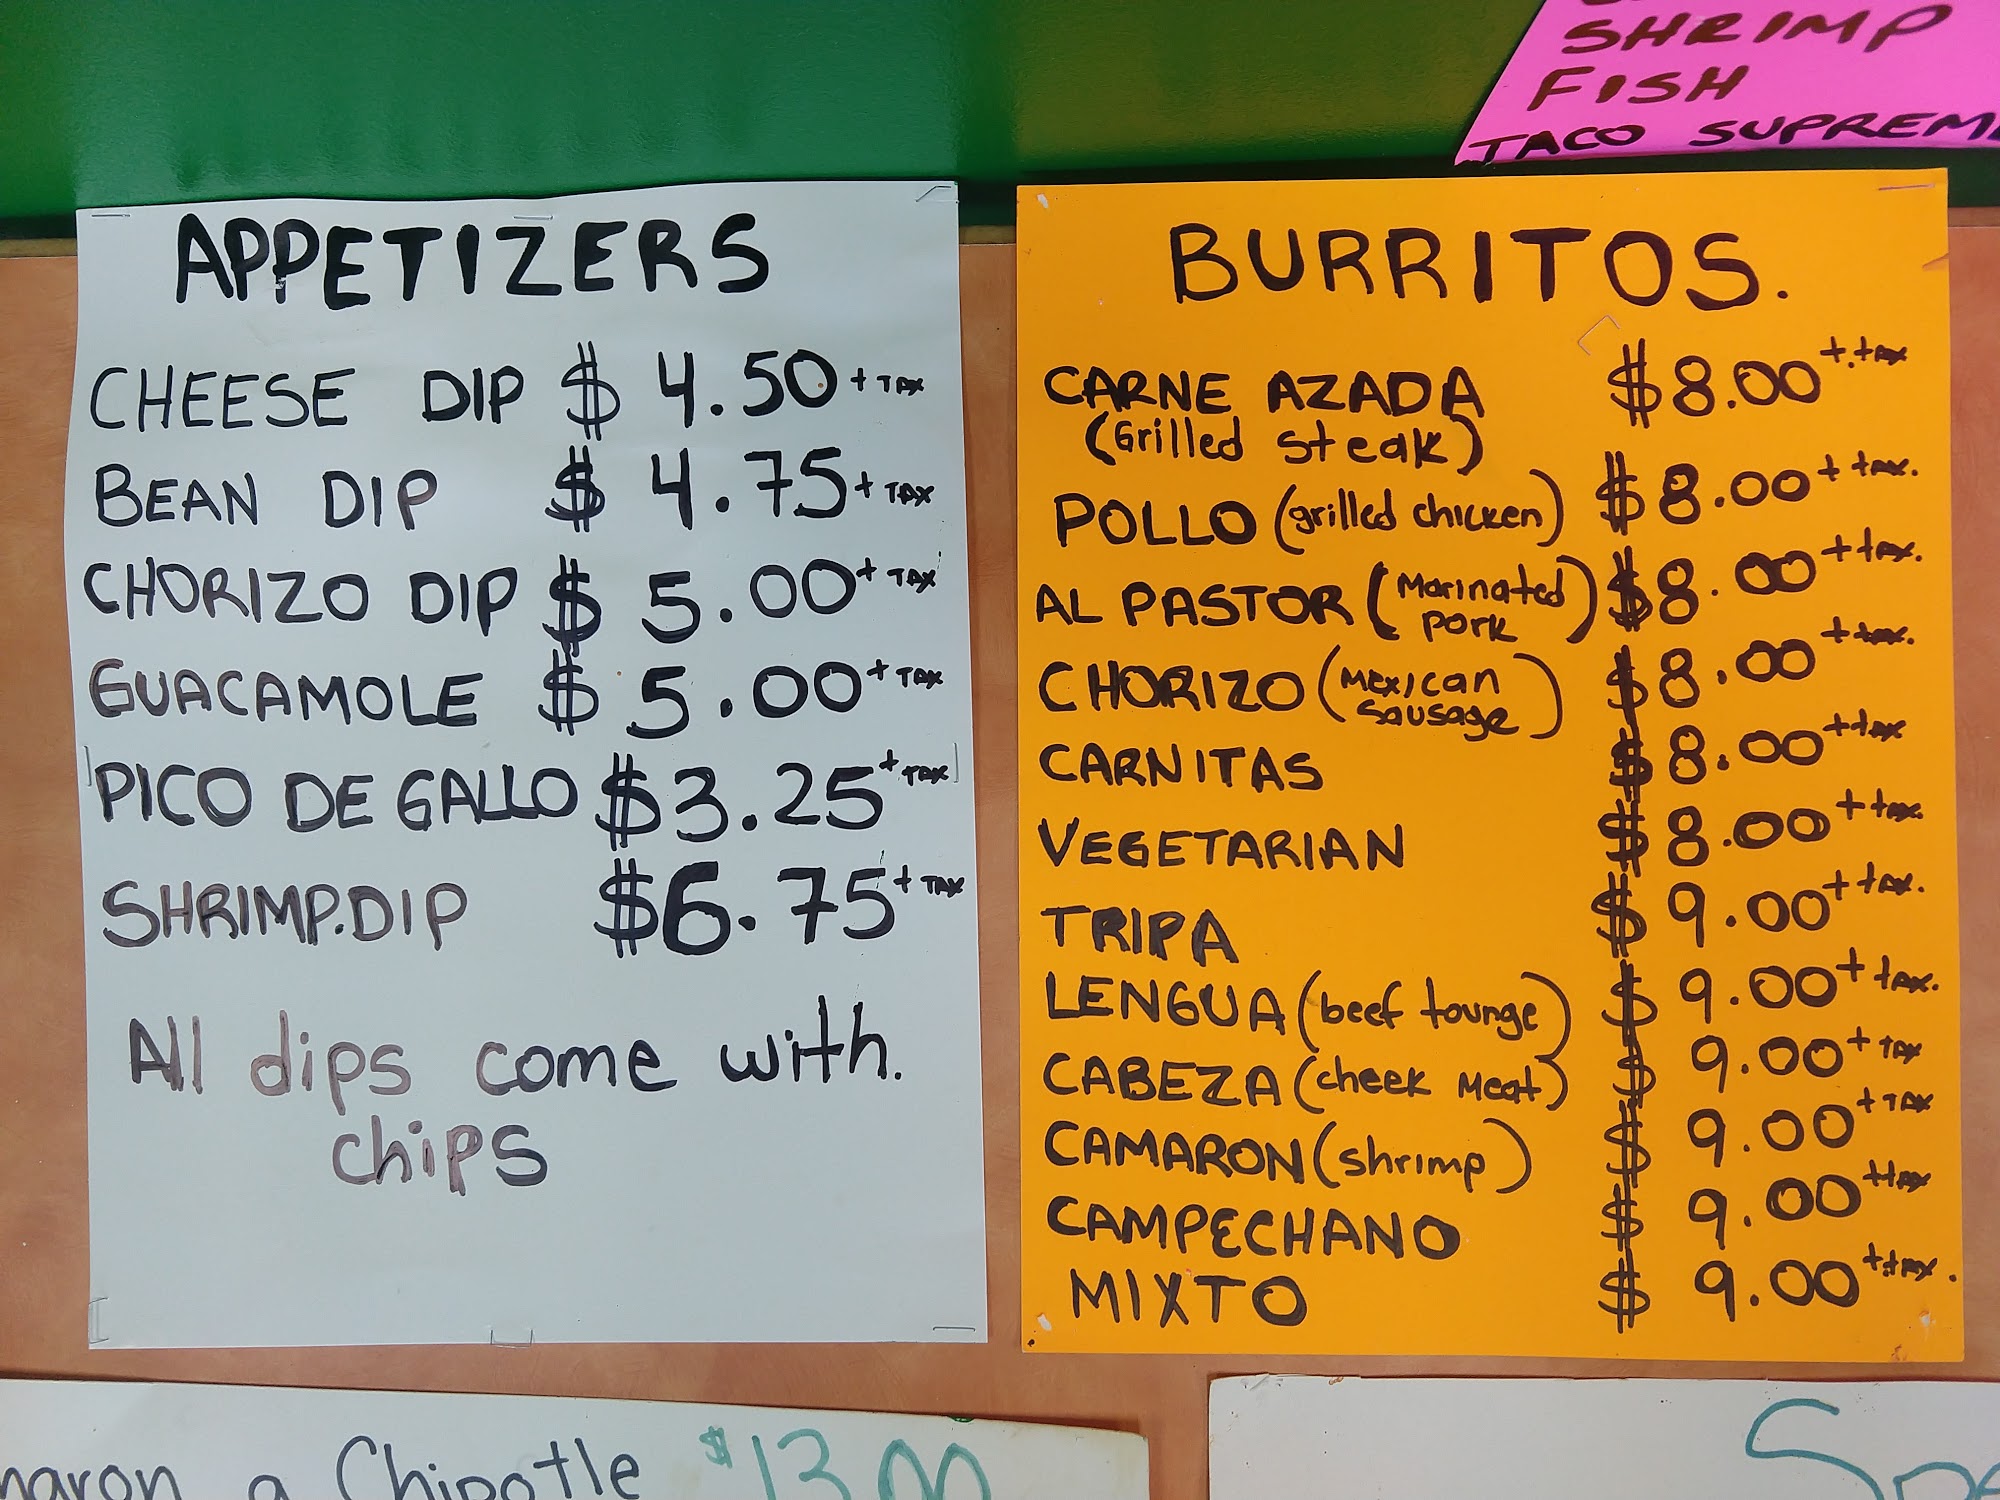 SHRIMP
FISH
TACO SUPREM
APPETIZERS
CHEESE DIP $ 4.50 + TAX
BEAN DIP $ 4.75 + TAX
CHORIZO DIP $ 5.00 + TAX
GUACAMOLE $ 5.00 + TAX
PICO DE GALLO $3.25 + TAX
SHRIMP.DIP $6.75 + TAX
All dips come with.
chips
BURRITOS.
CARNE AZADA $8.00 + tax
(Grilled steak)
POLLO (grilled chicken) $8.00 + tax.
AL PASTOR (Marinated pork) $8.00 + tax.
CHORIZO (Mexican sausage) $8.00 + tax.
CARNITAS $8.00 + tax
VEGETARIAN $8.00 + tax.
TRIPA $9.00 + tax.
LENGUA (beef tounge) $9.00 + tax.
CABEZA (cheek meat) $9.00 + TAX
CAMARON (shrimp) $9.00 + TAX
CAMPECHANO $9.00 + tax
MIXTO $9.00 + tax.
maron a Chipotle $13.00
Spe